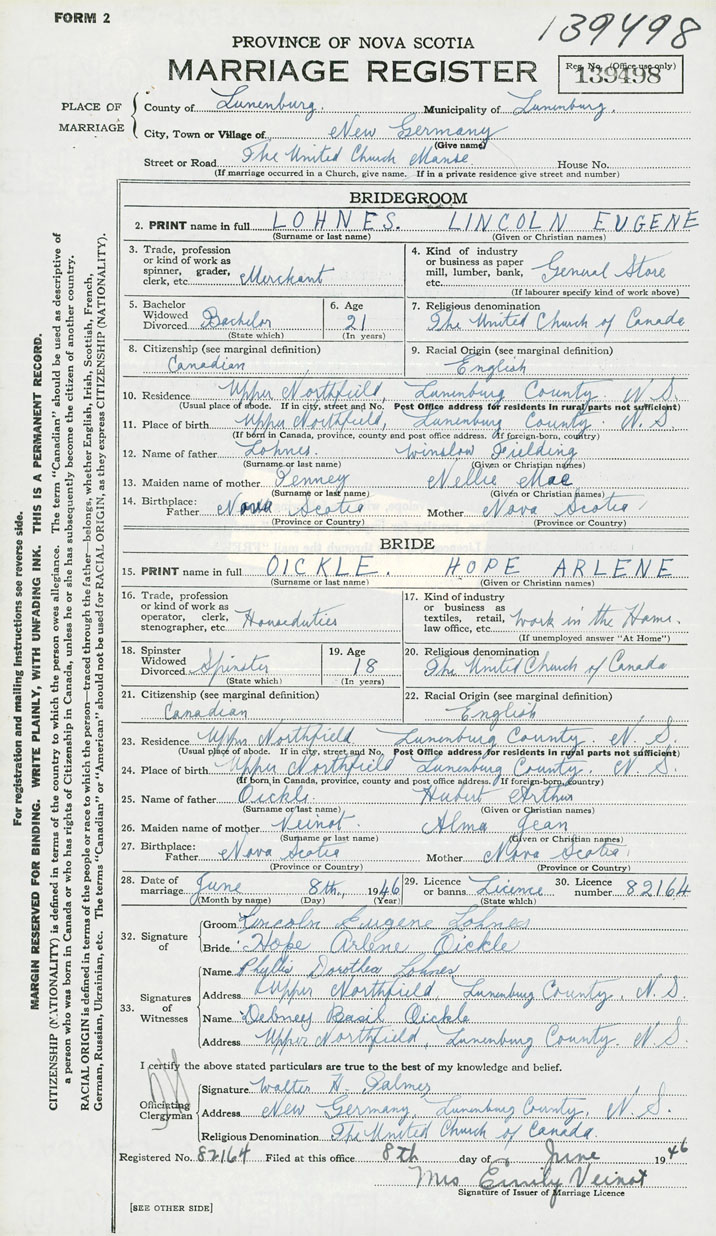 FORM 2
139498
PROVINCE OF NOVA SCOTIA
MARRIAGE REGISTER
Reg. No. (Office use only)
139498
PLACE OF MARRIAGE
County of Lunenburg. Municipality of Lunenburg.
City, Town or Village of New Germany
(Give name)
Street or Road The United Church Manse House No.
(If marriage occurred in a Church, give name. If in a private residence give street and number)
BRIDEGROOM
2. PRINT name in full LOHNES. LINCOLN EUGENE
(Surname or last name) (Given or Christian names)
3. Trade, profession or kind of work as spinner, grader, clerk, etc. Merchant
4. Kind of industry or business as paper mill, lumber, bank, etc. General Store
(If labourer specify kind of work above)
5. Bachelor Widowed Divorced Bachelor
(State which)
6. Age 21
(In years)
7. Religious denomination
The United Church of Canada
8. Citizenship (see marginal definition)
Canadian
9. Racial Origin (see marginal definition)
English
10. Residence Upper Northfield, Lunenburg County. N. S.
(Usual place of abode. If in city, street and No. Post Office address for residents in rural parts not sufficient)
11. Place of birth Upper Northfield, Lunenburg County. N. S.
(If born in Canada, province, county and post office address. If foreign-born, country)
12. Name of father Lohnes. Winslow Fielding
(Surname or last name) (Given or Christian names)
13. Maiden name of mother Penney Nellie Mae
(Surname or last name) (Given or Christian names)
14. Birthplace:
Father Nova Scotia Mother Nova Scotia
(Province or Country) (Province or Country)
BRIDE
15. PRINT name in full OICKLE. HOPE ARLENE
(Surname or last name) (Given or Christian names)
16. Trade, profession or kind of work as operator, clerk, stenographer, etc. Houseduties
17. Kind of industry or business as textiles, retail, law office, etc. Work in the Home.
(If unemployed answer "At Home")
18. Spinster Widowed Divorced Spinster
(State which)
19. Age 18
(In years)
20. Religious denomination
The United Church of Canada
21. Citizenship (see marginal definition)
Canadian
22. Racial Origin (see marginal definition)
English
23. Residence Upper Northfield Lunenburg County. N. S.
(Usual place of abode. If in city, street and No. Post Office address for residents in rural parts not sufficient)
24. Place of birth Upper Northfield Lunenburg County. N. S.
(If born in Canada, province, county and post office address. If foreign-born, country)
25. Name of father Oickle Hubert Arthur
(Surname or last name) (Given or Christian names)
26. Maiden name of mother Veinot Alma Jean
(Surname or last name) (Given or Christian names)
27. Birthplace:
Father Nova Scotia Mother Nova Scotia
(Province or Country) (Province or Country)
28. Date of marriage June 8th, 1946
(Month by name) (Day) (Year)
29. Licence or banns Licence
(State which)
30. Licence number 82164
32. Signature of
Groom Lincoln Eugene Lohnes
Bride Hope Arlene Oickle
33. Signatures of Witnesses
Name Phyllis Dorothea Lohnes
Address Upper Northfield, Lunenburg County. N. S.
Name Debney Basil Oickle
Address Upper Northfield, Lunenburg County. N. S.
I certify the above stated particulars are true to the best of my knowledge and belief.
Officiating Clergyman
Signature Walter H. Palmer
Address New Germany, Lunenburg County, N. S.
Religious Denomination The United Church of Canada.
Registered No. 82164 Filed at this office 8th day of June 1946
Mrs Emily Veinot
Signature of Issuer of Marriage Licence
[SEE OTHER SIDE]
For registration and mailing instructions see reverse side.
MARGIN RESERVED FOR BINDING. WRITE PLAINLY, WITH UNFADING INK. THIS IS A PERMANENT RECORD.
CITIZENSHIP (NATIONALITY) is defined in terms of the country to which the person owes allegiance. The term "Canadian" should be used as descriptive of
a person who was born in Canada or who has rights of Citizenship in Canada, unless he or she has subsequently become the citizen of another country.
RACIAL ORIGIN is defined in terms of the people or race to which the person—traced through the father—belongs, whether English, Irish, Scottish, French,
German, Russian, Ukrainian, etc. The terms "Canadian" or "American" should not be used for RACIAL ORIGIN, as they express CITIZENSHIP (NATIONALITY).